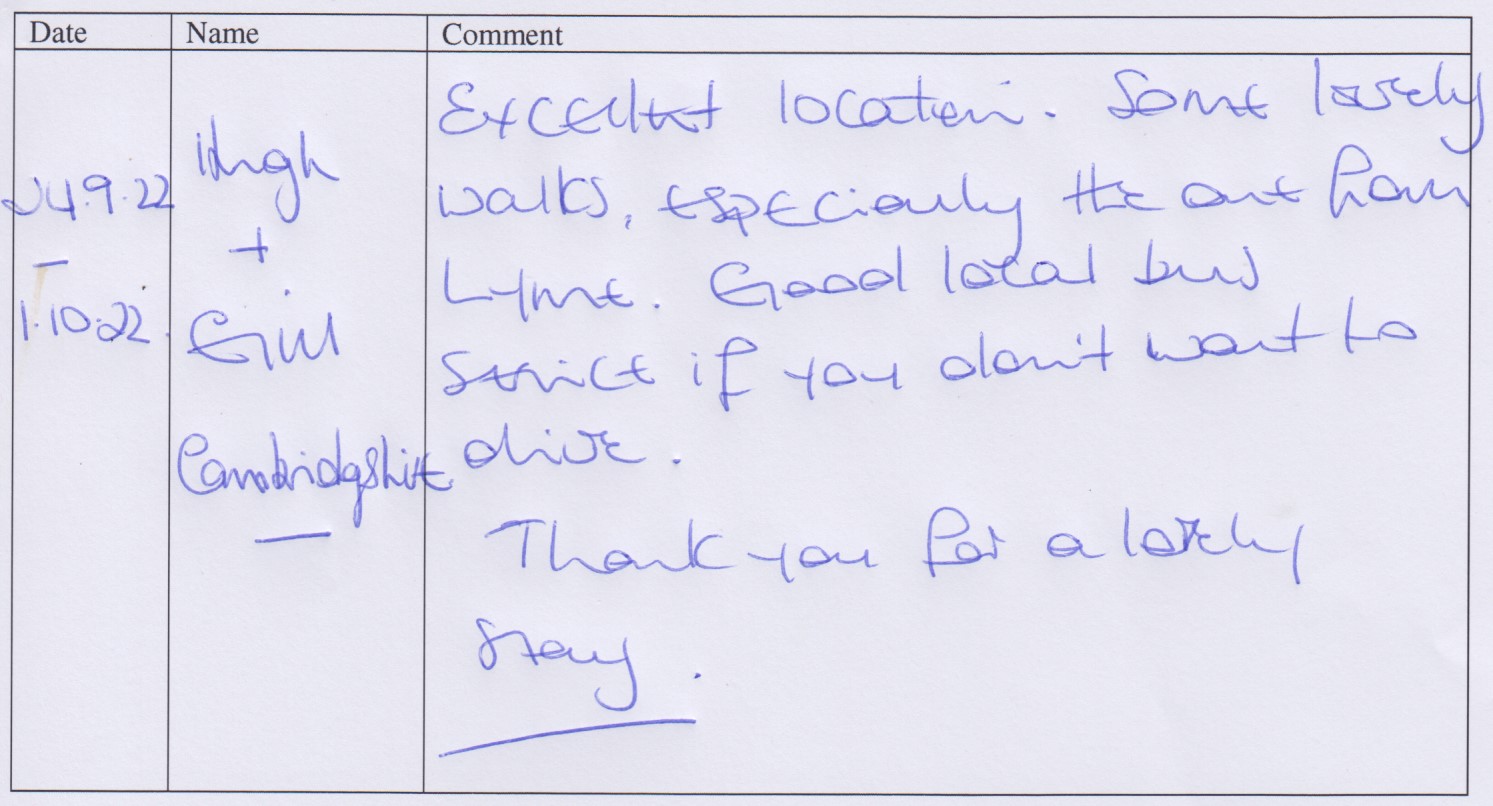 Date Name Comment
24.9.22
–
1.10.22.
Hugh
+
Gill
Cambridgshire
Excellent location. Some lovely
walks, especially the one from
Lyme. Good local bus
service if you don't want to
drive.
Thank you for a lovely
stay.